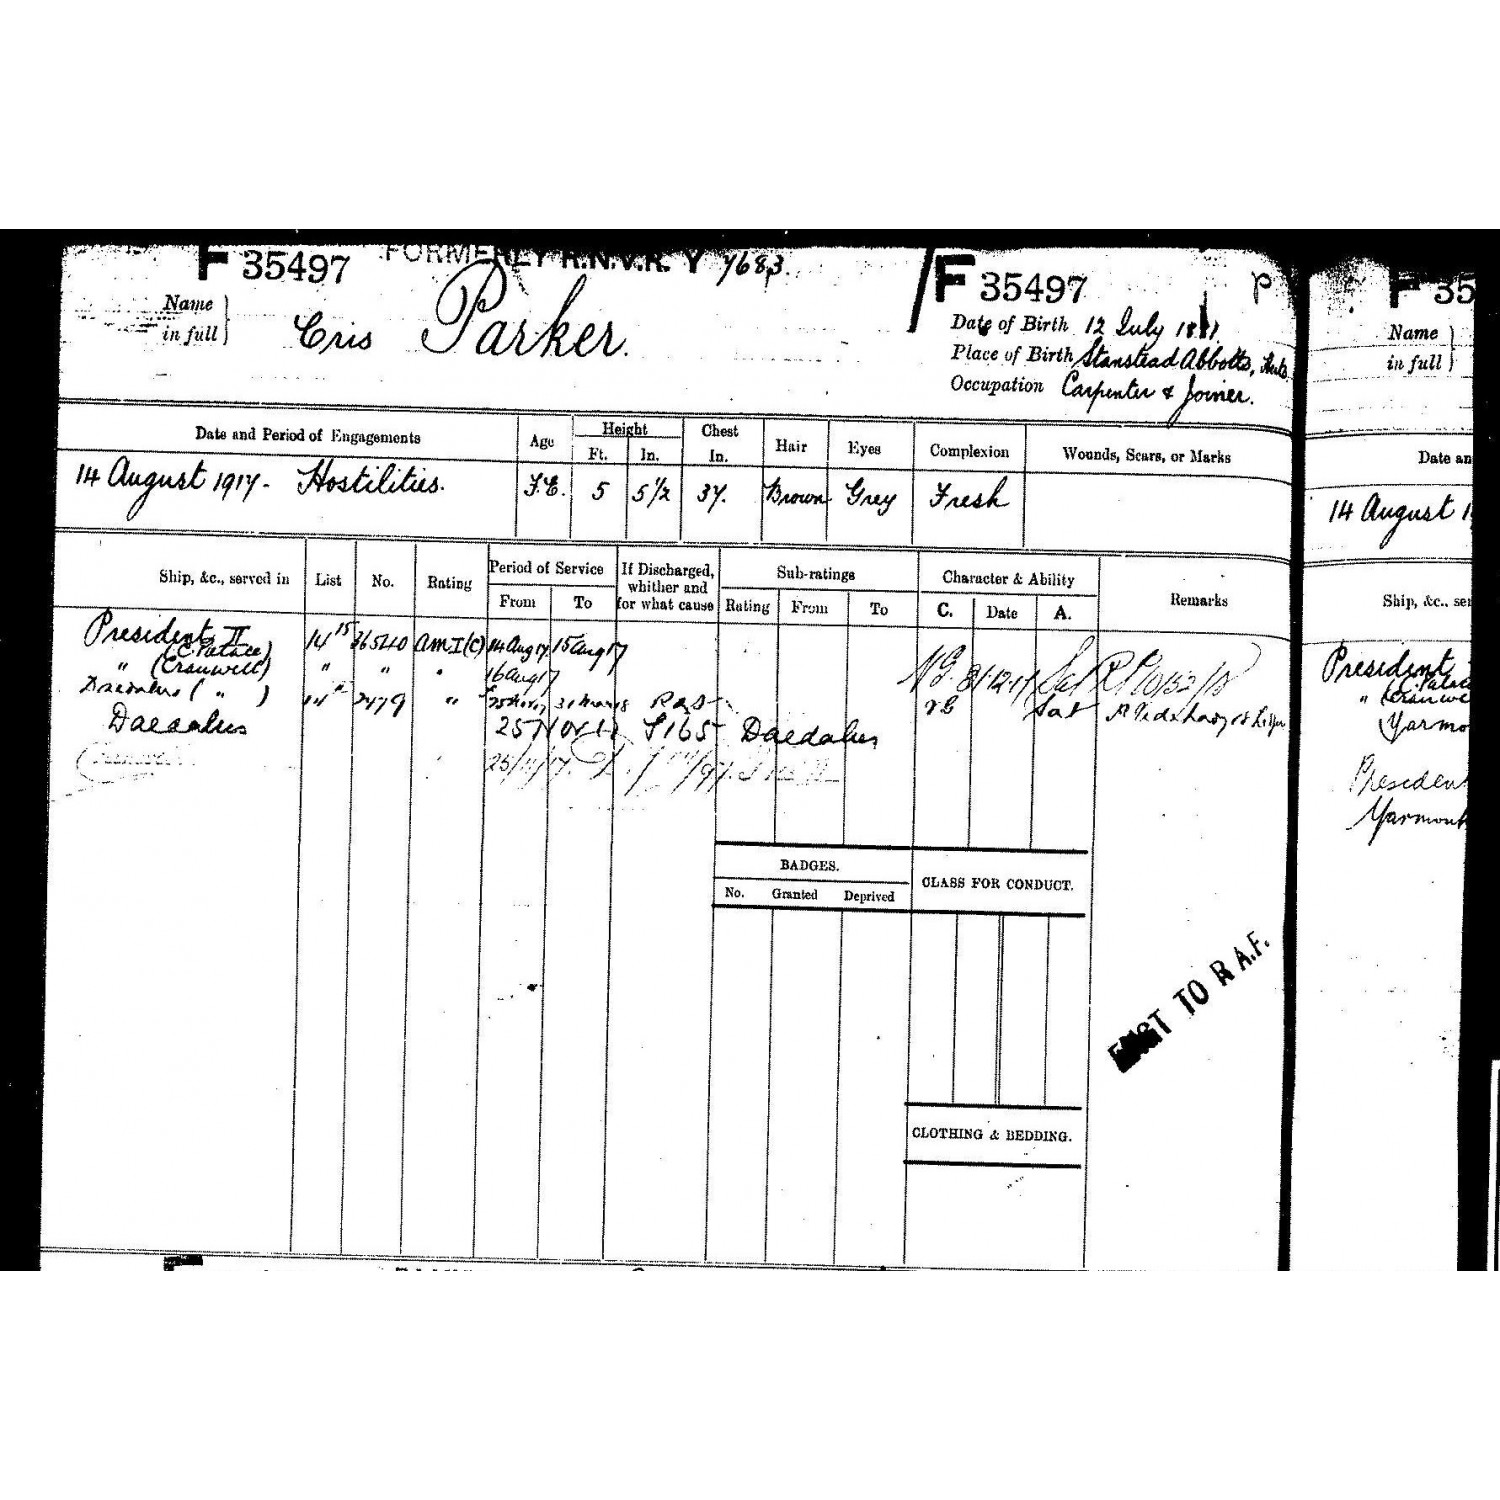 F 35497 FORMERLY R.N.V.R. Y 7683.
F 35497 P
Name in full } Cris Parker.
Date of Birth 12 July
Place of Birth Stanstead Abbotts, Herts.
Occupation Carpenter & Joiner.
Date and Period of Engagements Age Height Ft. In. Chest In. Hair Eyes Complexion Wounds, Scars, or Marks
14 August 1917 - Hostilities. F.E. 5 5½ 37. Brown Grey Fresh
Ship, &c., served in List No. Rating Period of Service From To If Discharged, whither and for what cause Sub-ratings Rating From To Character & Ability C. Date A. Remarks
President II (C Palace) 14 15 36540 AM I (C) 14 Aug 17 15 Aug 17
" (Cranwell) " " " 16 Aug 17 VG 31.12.17 Sat
Daedalus ( " ) 2479 " 25 Nov 17 31 Mar 18 VG Sat
Daedalus 25 Nov 17 Daedalus
25/11/17
BADGES.
No. Granted Deprived
CLASS FOR CONDUCT.
TO R.A.F.
CLOTHING & BEDDING.
F 35
Name in full }
Date an
14 August 1
Ship, &c., se
President
" (Cranwe
Yarmo
Presiden
Yarmout